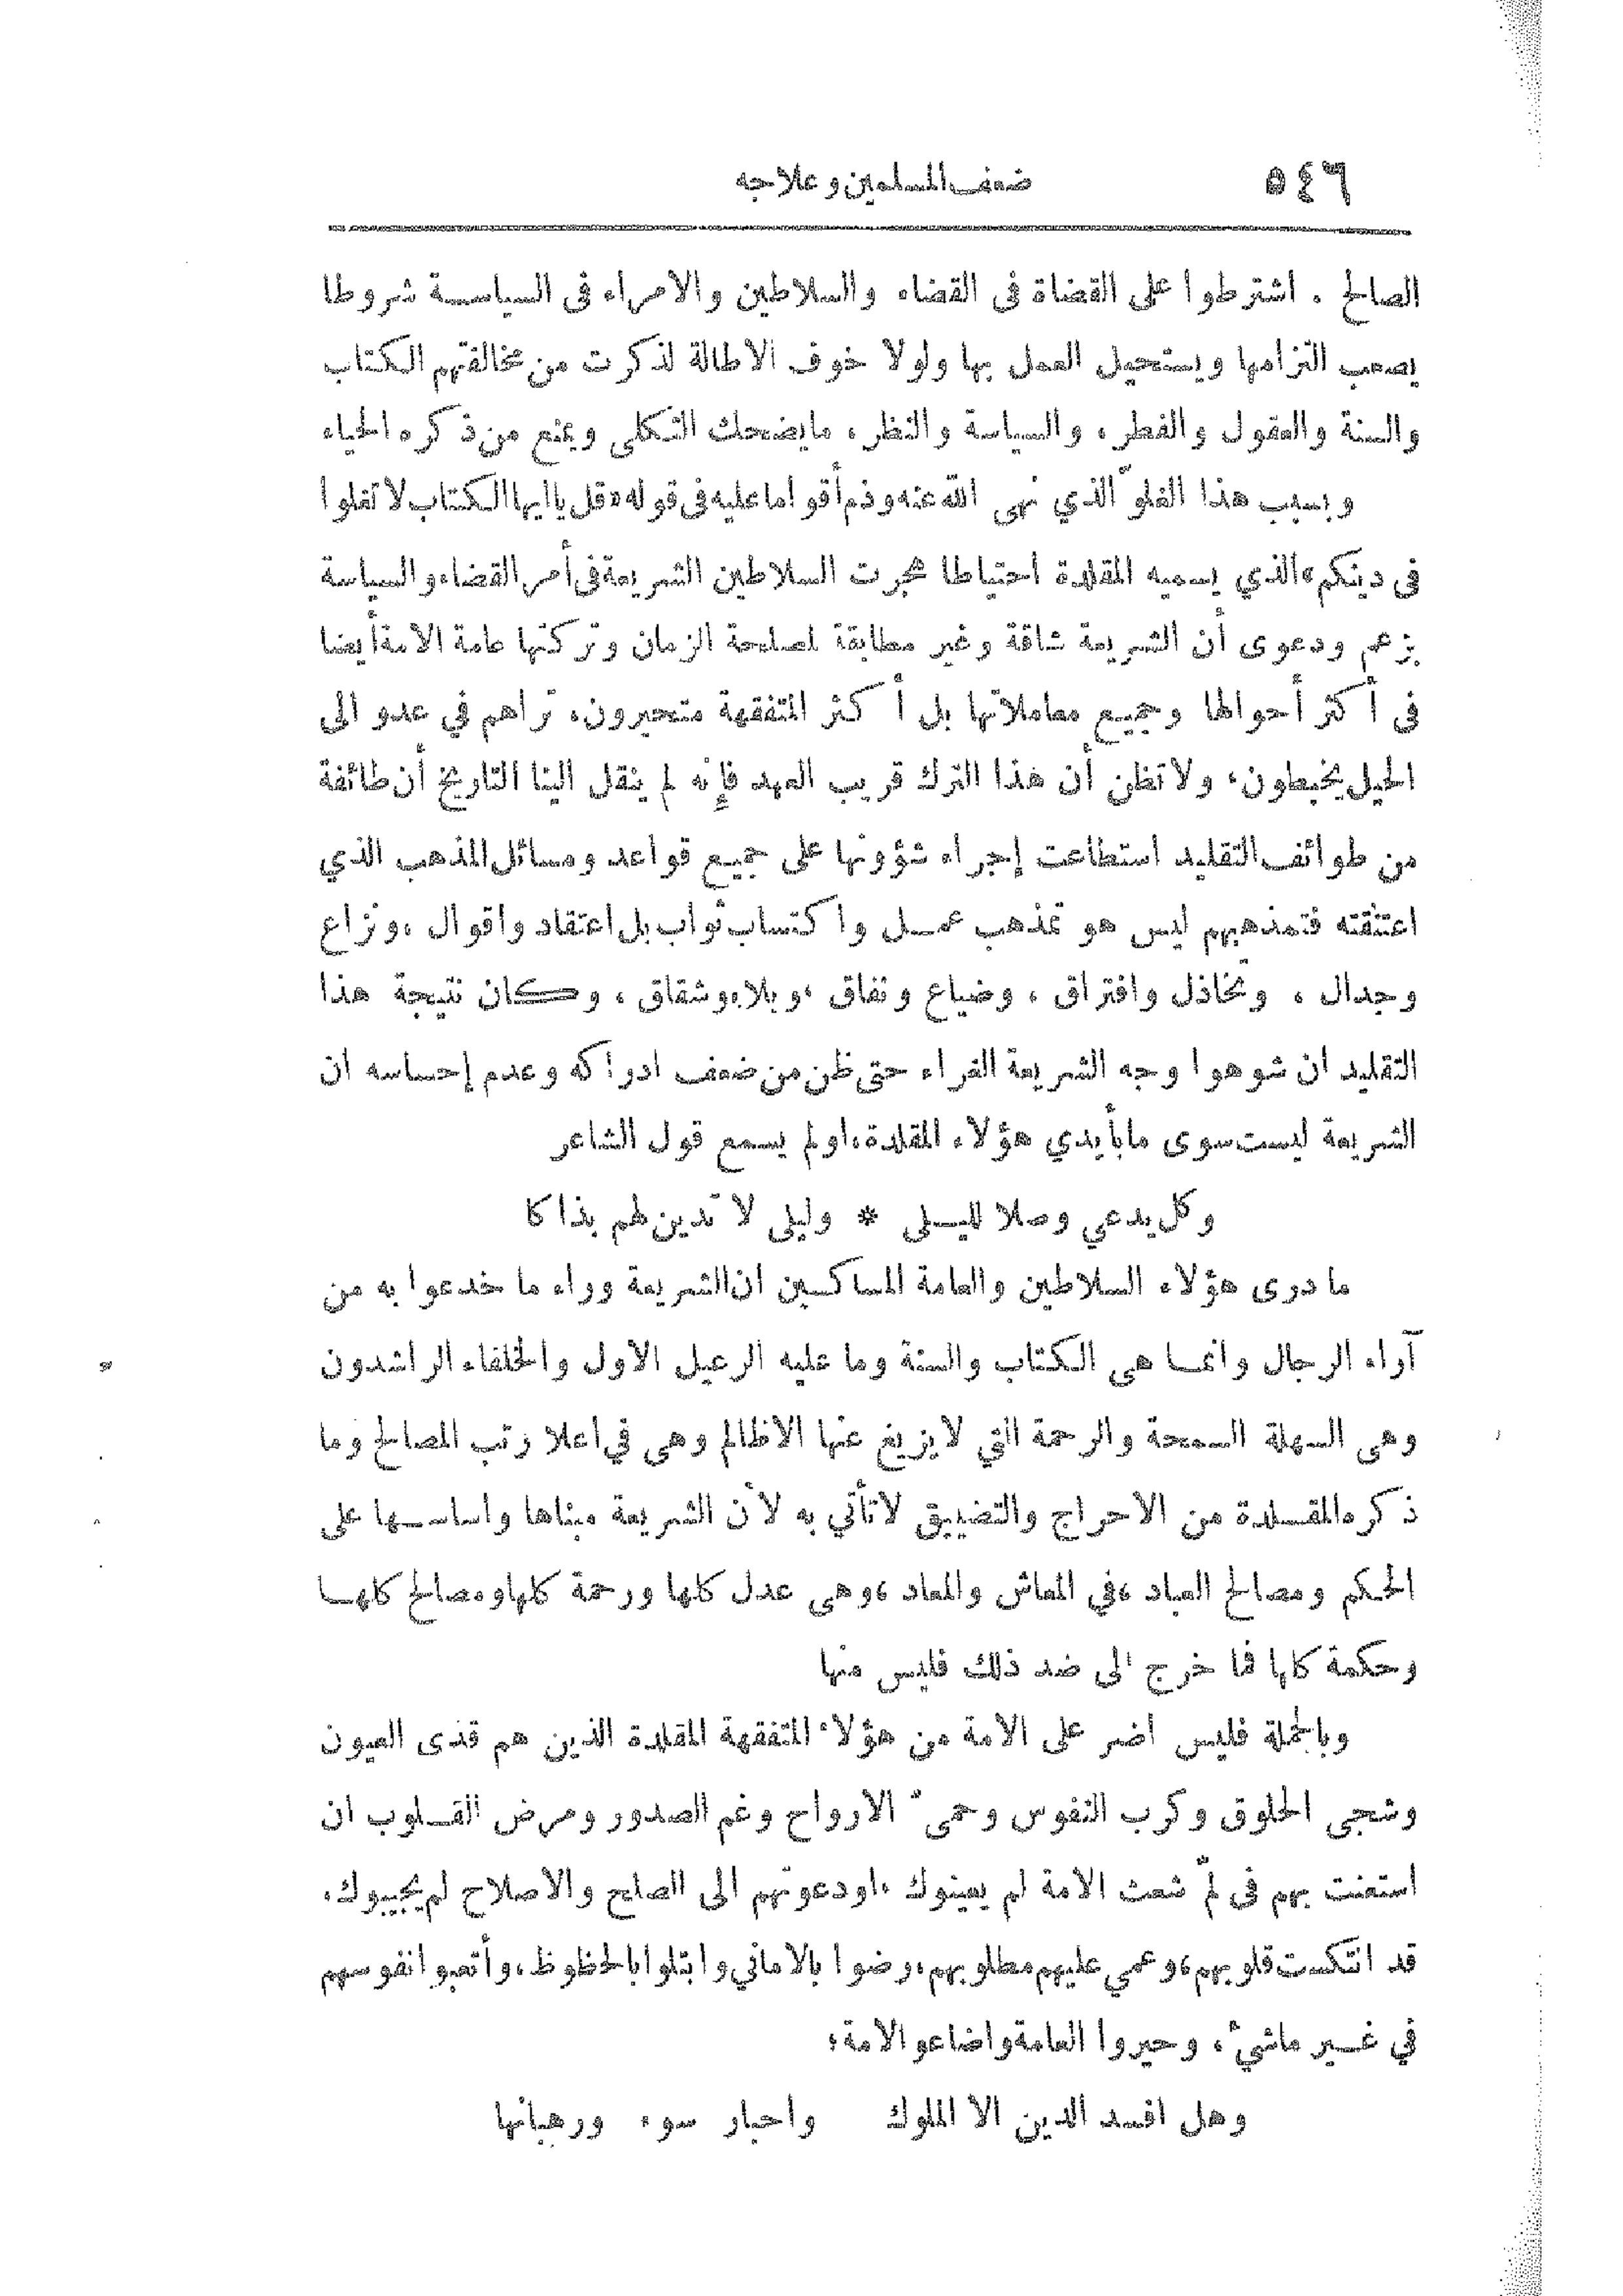 ٥٤٦
ضعف المسلمين وعلاجه
الصالح . اشترطوا على القضاة في القضاء والسلاطين والامراء في السياسة شروطا
يصعب التزامها ويستحيل العمل بها ولولا خوف الاطالة لذكرت من مخالفتهم الكتاب
والسنة والعقول والفطر، والسياسة والنظر، مايضحك الثكلى ويمنع من ذكره الحياء
وبسبب هذا الغلوّ الذي نهى الله عنه وذم أقواما عليه في قوله «قل ياايها الكتاب لاتغلوا
في دينكم» الذي يسميه المقلدة احتياطا هجرت السلاطين الشريعة في أمر القضاء والسياسة
بزعم ودعوى أن الشريعة شاقة وغير مطابقة لمصلحة الزمان وتركتها عامة الامة أيضا
في أكثر أحوالها وجميع معاملاتها بل أكثر المتفقهة متحيرون، تراهم في عدو الى
الحيل يخبطون، ولاتظن أن هذا الترك قريب العهد فإنه لم ينقل الينا التاريخ أن طائفة
من طوائف التقليد استطاعت إجراء شؤونها على جميع قواعد ومسائل المذهب الذي
اعتنقته فتمذهبهم ليس هو تمذهب عمل واكتساب ثواب بل اعتقاد واقوال ،ونزاع
وجدال ، وتخاذل وافتراق ، وضياع ونفاق ،وبلاء وشقاق ، وكان نتيجة هذا
التقليد ان شوهوا وجه الشريعة الغراء حتى ظن من ضعف ادراكه وعدم إحساسه ان
الشريعة ليست سوى مابأيدي هؤلاء المقلدة،اولم يسمع قول الشاعر
وكل يدعي وصلا لليلى * وليلى لا تدين لهم بذاكا
ما درى هؤلاء السلاطين والعامة المساكين ان الشريعة وراء ما خدعوا به من
آراء الرجال وانما هي الكتاب والسنة وما عليه الرعيل الاول والخلفاء الراشدون
وهي السهلة السمحة والرحمة التي لايزيغ عنها الاظالم وهي في اعلا رتب المصالح وما
ذكره المقلدة من الاحراج والتضييق لاتأتي به لأن الشريعة مبناها واساسها على
الحكم ومصالح العباد ،في المعاش والمعاد ،وهي عدل كلها ورحمة كلها ومصالح كلها
وحكمة كلها فما خرج الى ضد ذلك فليس منها
وبالجملة فليس اضر على الامة من هؤلاء المتفقهة المقلدة الذين هم قذى العيون
وشجى الحلوق وكرب النفوس وحمى الارواح وغم الصدور ومرض القلوب ان
استعنت بهم في لمّ شعث الامة لم يعينوك ،اودعوتهم الى الصلح والاصلاح لم يجيبوك،
قد انتكست قلوبهم،وعمي عليهم مطلوبهم،رضوا بالاماني وابتلوا بالحظوظ،وأتعبوا نفوسهم
في غير ماشيء، وحيروا العامة واضاعو الامة؛
وهل افسد الدين الا الملوك واحبار سوء ورهبانها